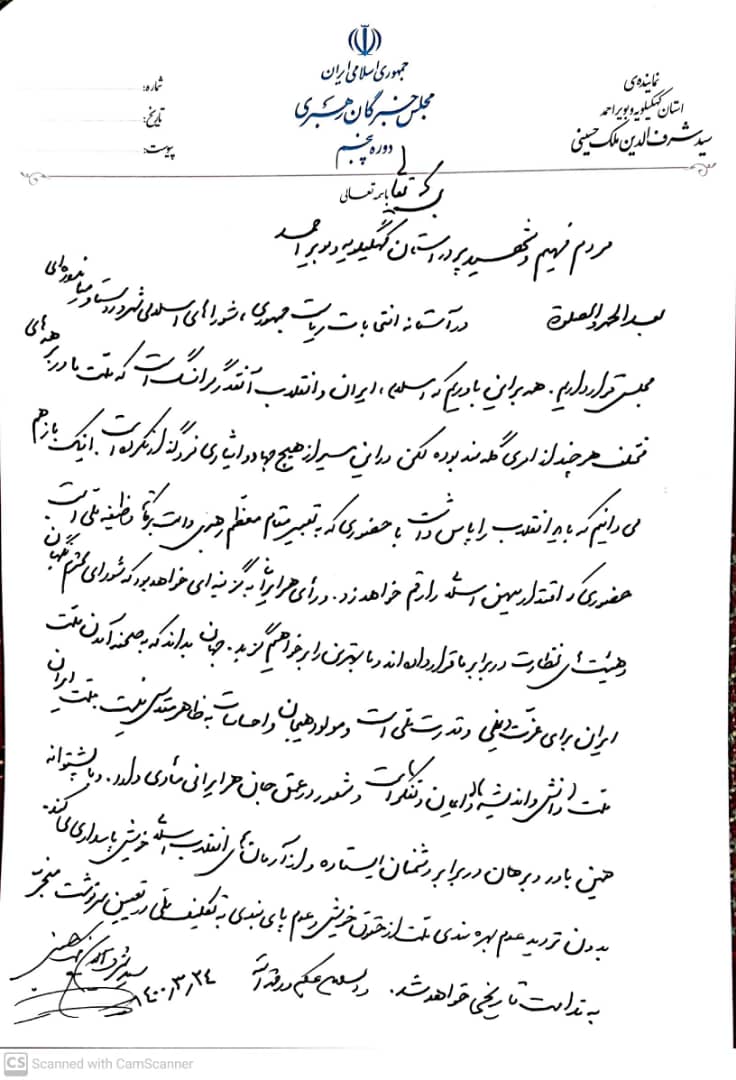 جمهوری اسلامی ایران
مجلس خبرگان رهبری
دوره پنجم
نماینده‌ی
استان کهگیلویه و بویراحمد
سید شرف الدین ملک حسینی
شماره:
تاریخ:
پیوست:
باسمه تعالی
مردم فهیم و شهید پرور استان کهگیلویه و بویر احمد
بعد الحمد و الصلوة در آستانه انتخابات ریاست جمهوری، شوراهای اسلامی شهر و روستا و میاندوره‌ای
مجلس قرار داریم. همه بر این باوریم که اسلام، ایران و انقلاب آنقدر گرانسنگ است که ملت ما در برهه های
مختلف هر چند از اموری گله مند بوده لکن در این مسیر از هیچ جهاد و ایثاری فروگذار نکرده است. اینک باز هم
می دانیم که باید انقلاب را پاس داشت با حضوری که به تعبیر مقام معظم رهبری دامت برکاته وظیفه ملی است
حضوری که اقتدار میهن اسلامی را رقم خواهد زد. و رأی هر ایرانی به گزینه ای خواهد بود که شورای محترم نگهبان
و هیئت های نظارت در برابر ما قرار داده اند و ما بهترین را بر خواهیم گزید. جهان بداند که به صحنه آمدن ملت
ایران برای عزت دینی و قدرت ملی است و مولود هیجان و احساسات به ظاهر مقدس نیست. ملت ایران
ملت دانش و اندیشه و ایمان و تفکر است و شعور در عمق جان هر ایرانی مأوی دارد. و با پشتوانه
همین باور و برهان در برابر دشمنان ایستاده و از آرمان های انقلاب اسلامی خویش پاسداری می کند.
بدون تردید عدم بهره مندی ملت از حقوق خویش و عدم پای بندی به تکلیف ملی در تعیین سرنوشت منجر
به ندامت تاریخی خواهد شد. والسلام علیکم و رحمة الله
سید شرف الدین ملک حسینی
۱۴۰۰/۳/۲۴
CS Scanned with CamScanner